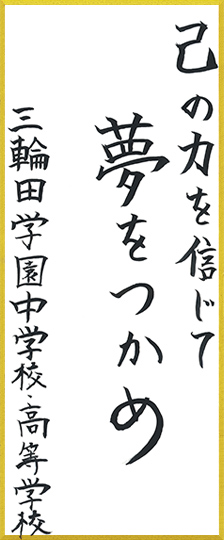 己の力を信じて
夢をつかめ
三輪田学園中学校・高等学校